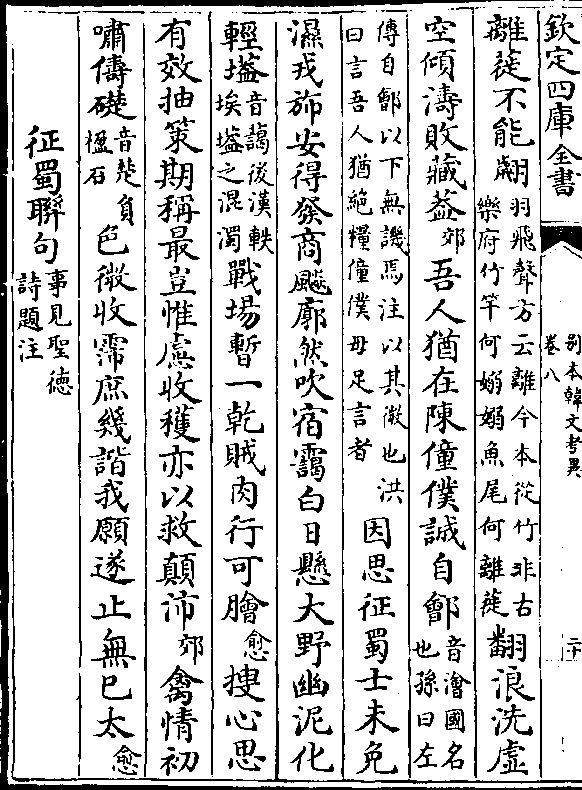 欽定四庫全書
别本韓文考異
卷八
二十
離蓰不能翩羽飛聲方云離今本從竹非古
樂府竹竿何嫋嫋魚尾何離蓰翻浪洗虚
空傾濤敗藏葢郊吾人猶在陳僮僕誠自鄶音澮國名
也孫曰左
傳自鄶以下無譏焉注以其微也洪
曰言吾人猶絶糧僮僕毋足言者因思征蜀士未免
濕戎斾安得發商飈廓然吹宿靄白日懸大野幽泥化
輕壒音藹後漢軼
埃壒之混濁戰場暫一乾賊肉行可膾愈搜心思
有效抽策期稱最豈惟慮收穫亦以救顛沛郊禽情初
嘯儔礎音楚負
楹石色微收霈庶幾諧我願遂止無已太愈
征蜀聯句事見聖德
詩題注